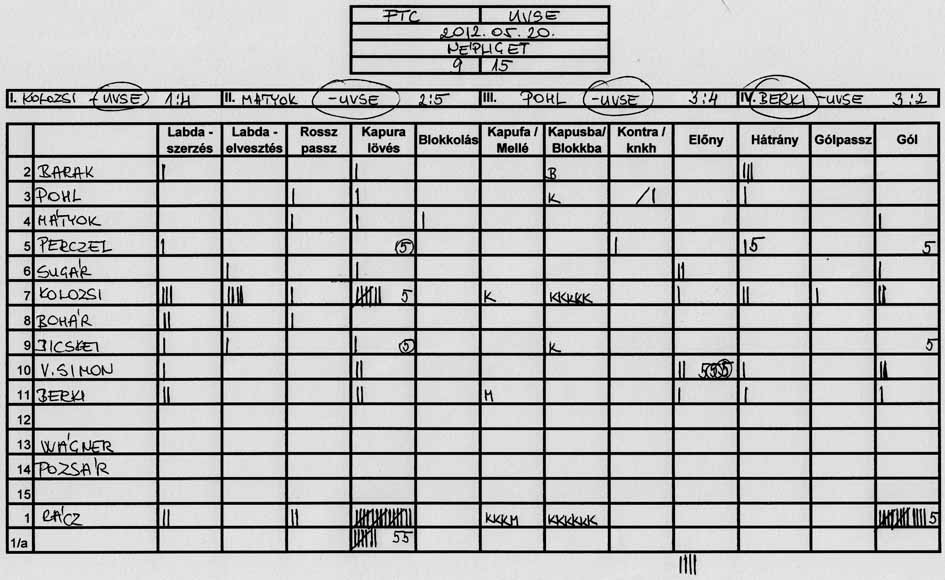 FTC UVSE
2012. 05. 20.
NÉPLIGET
9 15
I. KOLOZSI - UVSE 1:4 II. MÁTYOK - UVSE 2:5 III. POHL - UVSE 3:4 IV. BERKI - UVSE 3:2
Labda - szerzés Labda - elvesztés Rossz passz Kapura lövés Blokkolás Kapufa / Mellé Kapusba/ Blokkba Kontra / knkh Előny Hátrány Gólpassz Gól
2 BARAK B
3 POHL K
4 MÁTYOK
5 PERCZEL 5 5 5
6 SUGÁR
7 KOLOZSI 5 K KKKKK
8 BOHÁR
9 BICSKEI 5 K 5
10 V. SIMON 555
11 BERKI M
12
13 WÁGNER
14 POZSÁR
15
1 RÁCZ KKKM KKKKKK 5
1/a 55